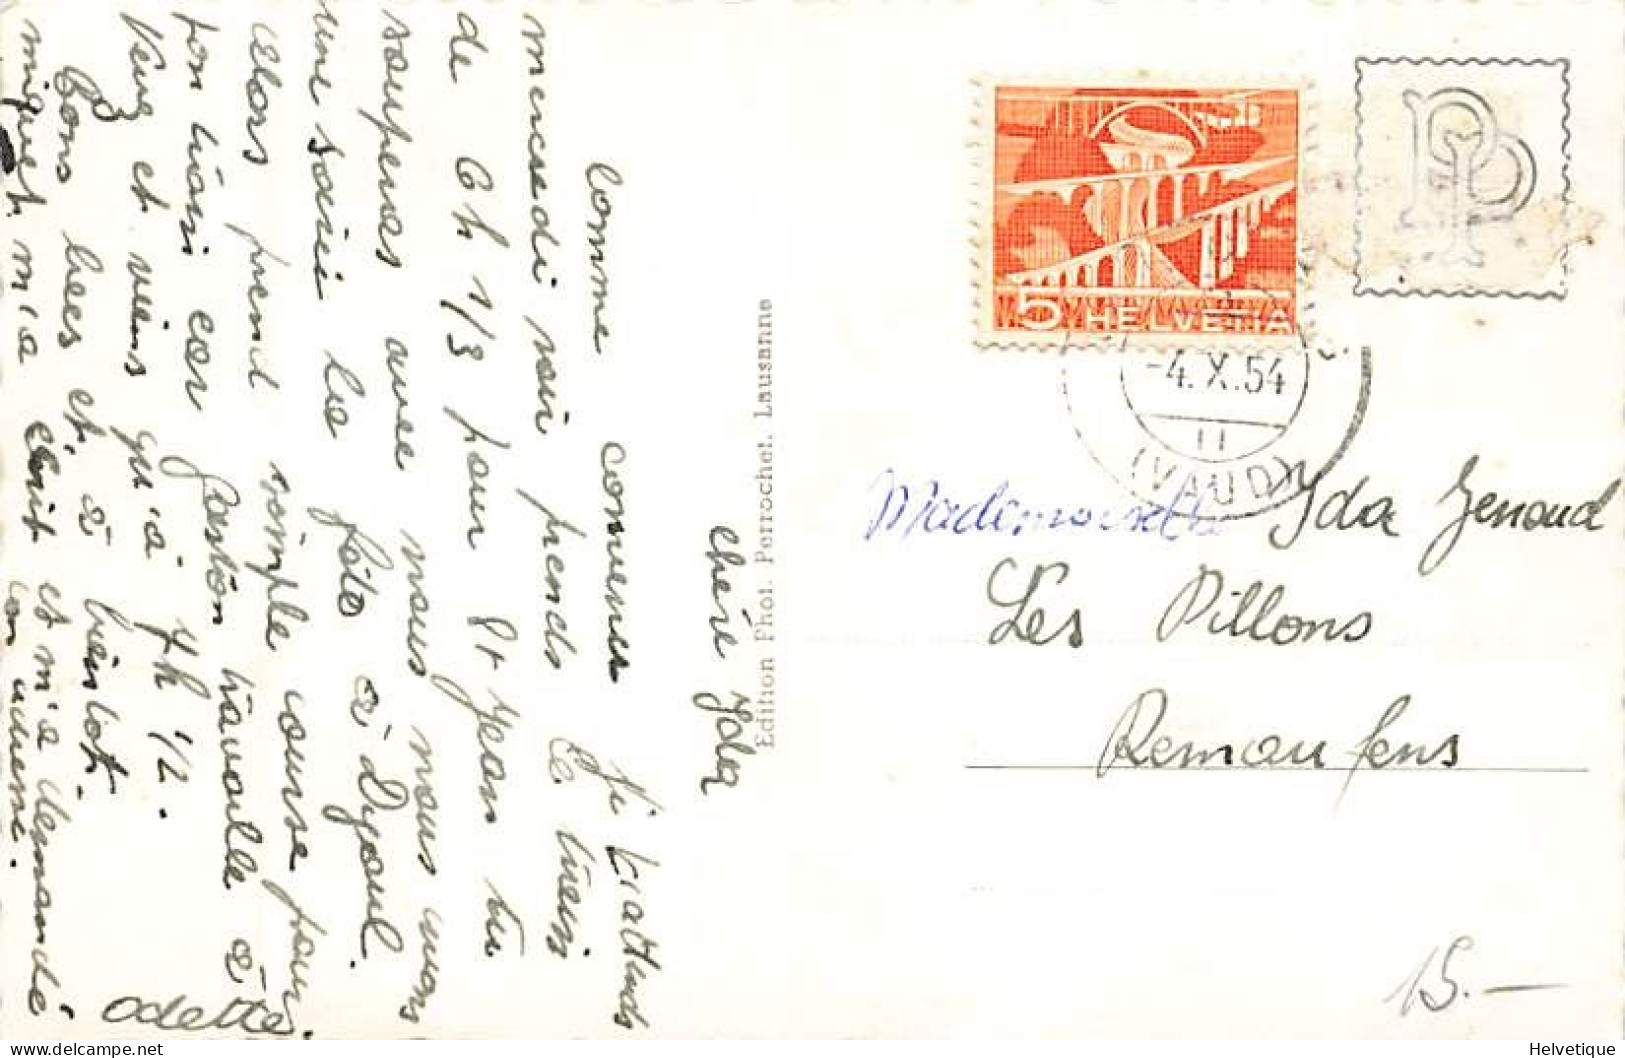 Chère Ida
Comme convenu je t'attends
mercredi soir prends le train
de 6h 1/3 pour St Jean tu
souperas avec nous nous avons
une soirée
alors prend simple course pour
ton train car Gaston travaille à
Vevey et viens qu'à 7h 1/2.
Bons becs et à bientôt.
m'a écrit et m'a demandé
Odette.
Edition Phot. Perrochet. Lausanne
5 HELVETIA
PP
-4.X.54
11
(VAUD)
Mademoiselle Ida Genoud
Les Pillons
Remaufens
15.—
delcampe.net
Helvetique